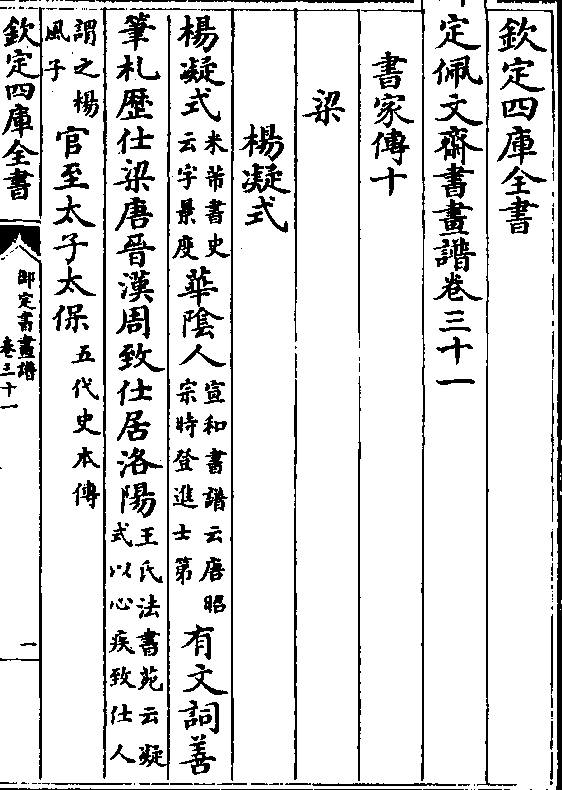 欽定四庫全書
定佩文齋書畫譜卷三十一
書家傳十
梁
楊凝式
楊凝式米芾書史云字景度華陰人宣和書譜云唐昭宗時登進士第有文詞善
筆札歷仕梁唐晉漢周致仕居洛陽王氏法書苑云凝式以心疾致仕人
謂之楊風子官至太子太保五代史本傳
欽定四庫全書
御定書畫譜
卷三十一
一